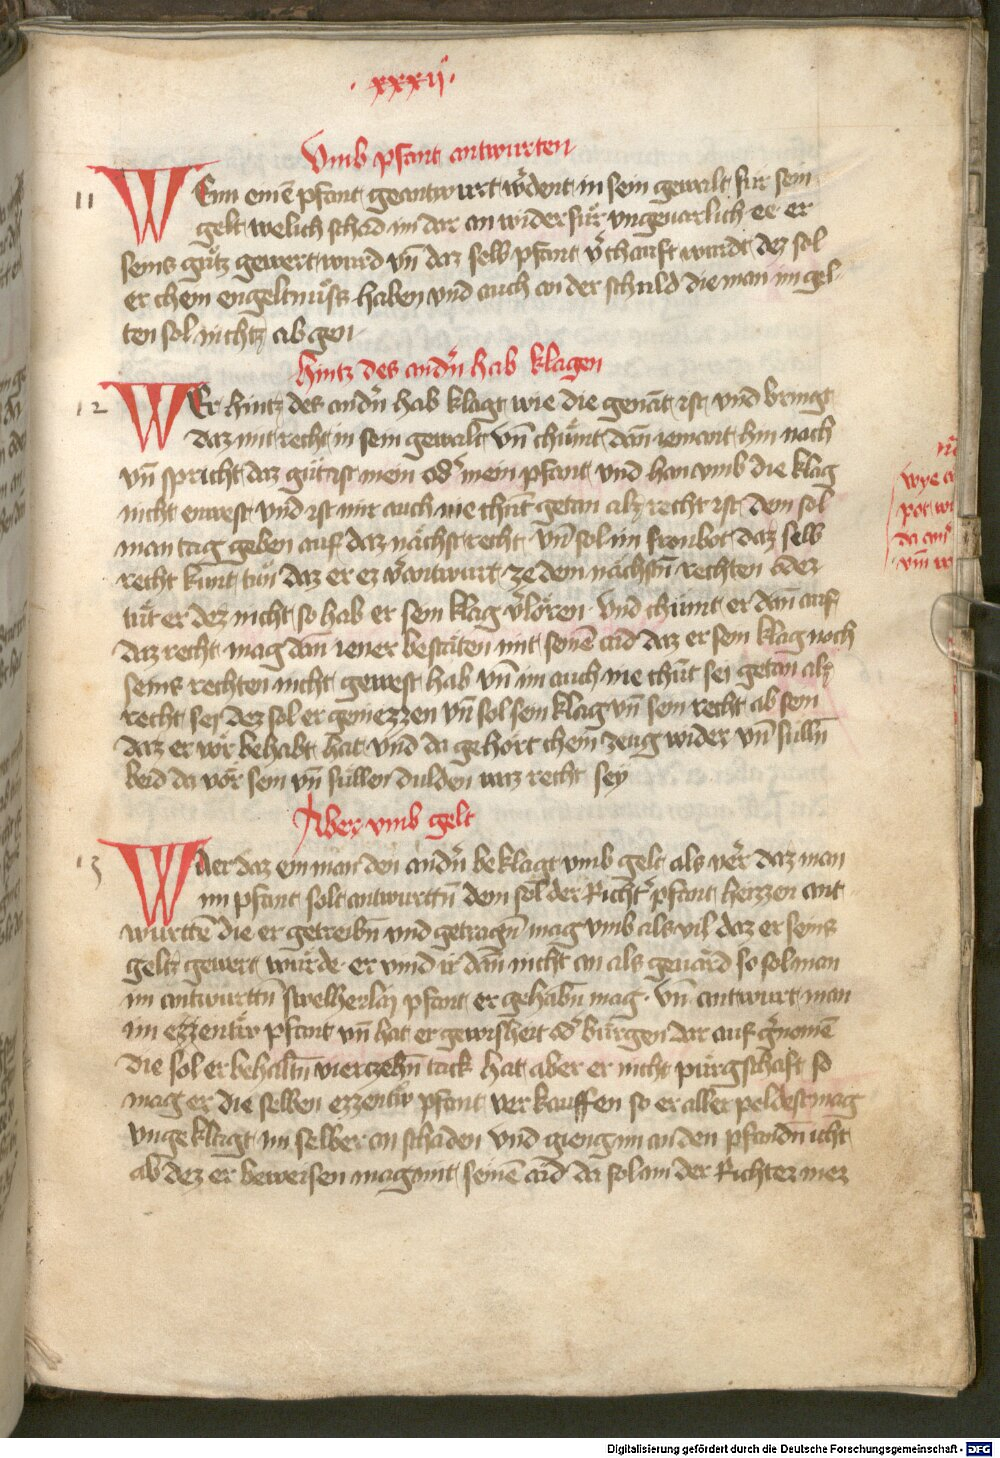 · xxxij ·
Vmb pfant antwurten
11
WEnn einē pfant geantwurt wͤrdent in sein gewalt fur sein
gelt welich schad im dar an widerfür vngeuarlich ee er
seins gůtz gewert wurd vn̄ daz selb pfant v̓chauft wurdt dez sol
er chein engeltnüss haben vnd auch an der schuld die man im gel¬
ten sol nichtz ab gen
hintz des andn̓ hab klagen
12
WEr hintz des andn̓ hab klagt wie die genāt ist vnd bringt
daz mit recht in sein gewalt vn̄ chümt dan̄ iemant hin nach
vn̄ spricht daz gůt ist mein od̓ mein pfant vnd han vmb die klag
nicht enwest vnd ist mir auch nie chūt getan alz recht ist dem sol
man tag geben auf daz nächst recht vn̄ sol im fronbot daz selb
recht kunt tůn daz er ez v̓antwurt ze dem nächsn̄ rechten
tůt er dez nicht so hab er sein klag v̓loren vnd chümt er dan̄ auf
daz recht mag dan̄ iener bestäten mit seinē aid daz er sein klag noch
seins rechten nicht gewest hab vn̄ im auch nie chūt sei getan alz
recht sei dez sol er geniezzen vn̄ sol sein klag vn̄ sein recht ab sein
daz er vor behabt hat vnd da gehört chein zeug wider vn̄ sülln̄
beid da vor sein vn̄ süllen dulden waz recht sey
Aber vmb gelt
13
WAer daz ein man den andn̓ beklagt vmb gelt als ver daz man
im pfant solt antwurttn̄ dem sol der Richt̓ pfant heizzen ant
wurttē die er getreibn̄ vnd getragn̄ mag vmb als vil daz er seins
geltz gewert würde er vind ir dan̄ nicht an als geuärd so sol man
im antwurttn̄ swelherlaj pfant er gehabn̄ mag · vn̄ antwurt man
im ezzentew pfant vn̄ hat er gewisheit od̓ bürgen dar auf g̓nomē
die sol er behaltn̄ vierczehn̄ tack hat aber er nicht pürgschaft so
mag er die selben ezzentew pfant verkauffen so er aller peldest mag
vngeklagt im selber an schaden vnd gieng im an den pfandn̄ icht
ab dez er beweisen mag mit seinē aid da sol im der Richter mer
wye
pot
Digitalisierung gefördert durch die Deutsche Forschungsgemeinschaft - DFG